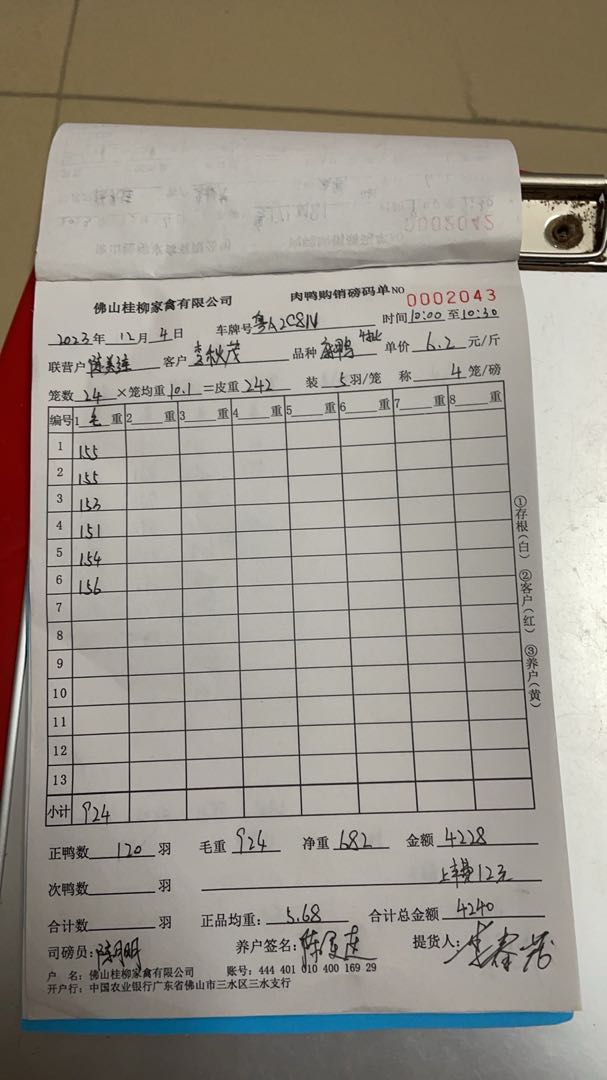 0002042
佛山桂柳家禽有限公司 肉鸭购销磅码单 NO 0002043
2023年 12月 4日 车牌号 粤A2C81N 时间 10:00 至 10:30
联营户 客户 李秋茂 品种 麻鸭 单价 6.2 元/斤
笼数 24 ×笼均重 10.1 =皮重 242 装 5 羽/笼 称 4 笼/磅
编号 1 毛 重 2 重 3 重 4 重 5 重 6 重 7 重 8 重
1 155
2 155
3 153
4 151
5 154
6 156
7
8
9
10
11
12
13
小计 924
①存根(白) ②客户(红) ③养户(黄)
正鸭数 120 羽 毛重 924 净重 682 金额 4228
次鸭数 羽 上车费12元
合计数 羽 正品均重: 5.68 合计总金额 4240
司磅员: 养户签名: 提货人:
户 名: 佛山桂柳家禽有限公司 账号: 444 401 010 400 169 29
开户行: 中国农业银行广东省佛山市三水区三水支行